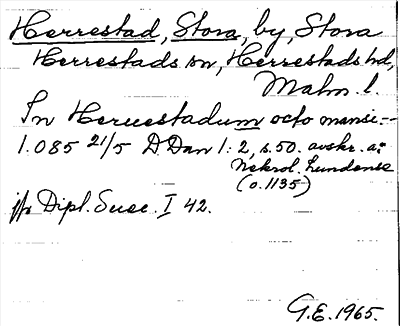 Herrestad, Stora, by, Stora
Herrestads sn, Herrestads hd,
Malm. l.
In Heruestadum octo mansi.-
1.085 21/5 D Dan 1: 2, s. 50. avskr. a:
Nekrol. Lundense
(o. 1135)
jfr Dipl. Suec. I 42.
G.E. 1965.